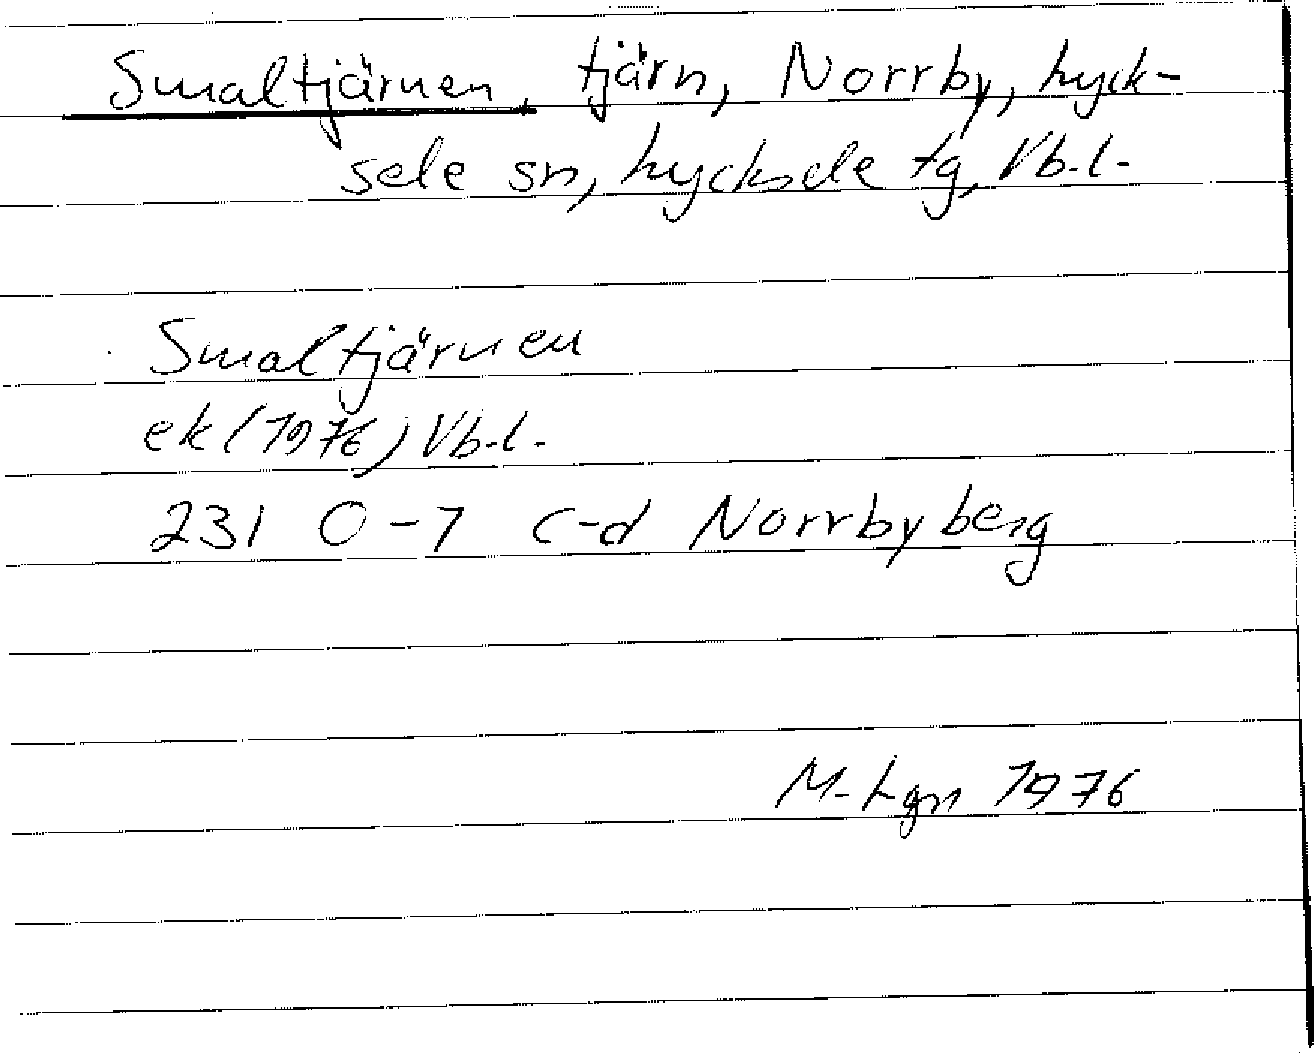 Smaltjärnen, tjärn, Norrby, Lyck-
sele sn, Lycksele tg, Vb.l.
Smaltjärnen
ek (1976) Vb.l.
23I 0-7 c-d Norrbyberg
M. Lgn 1976